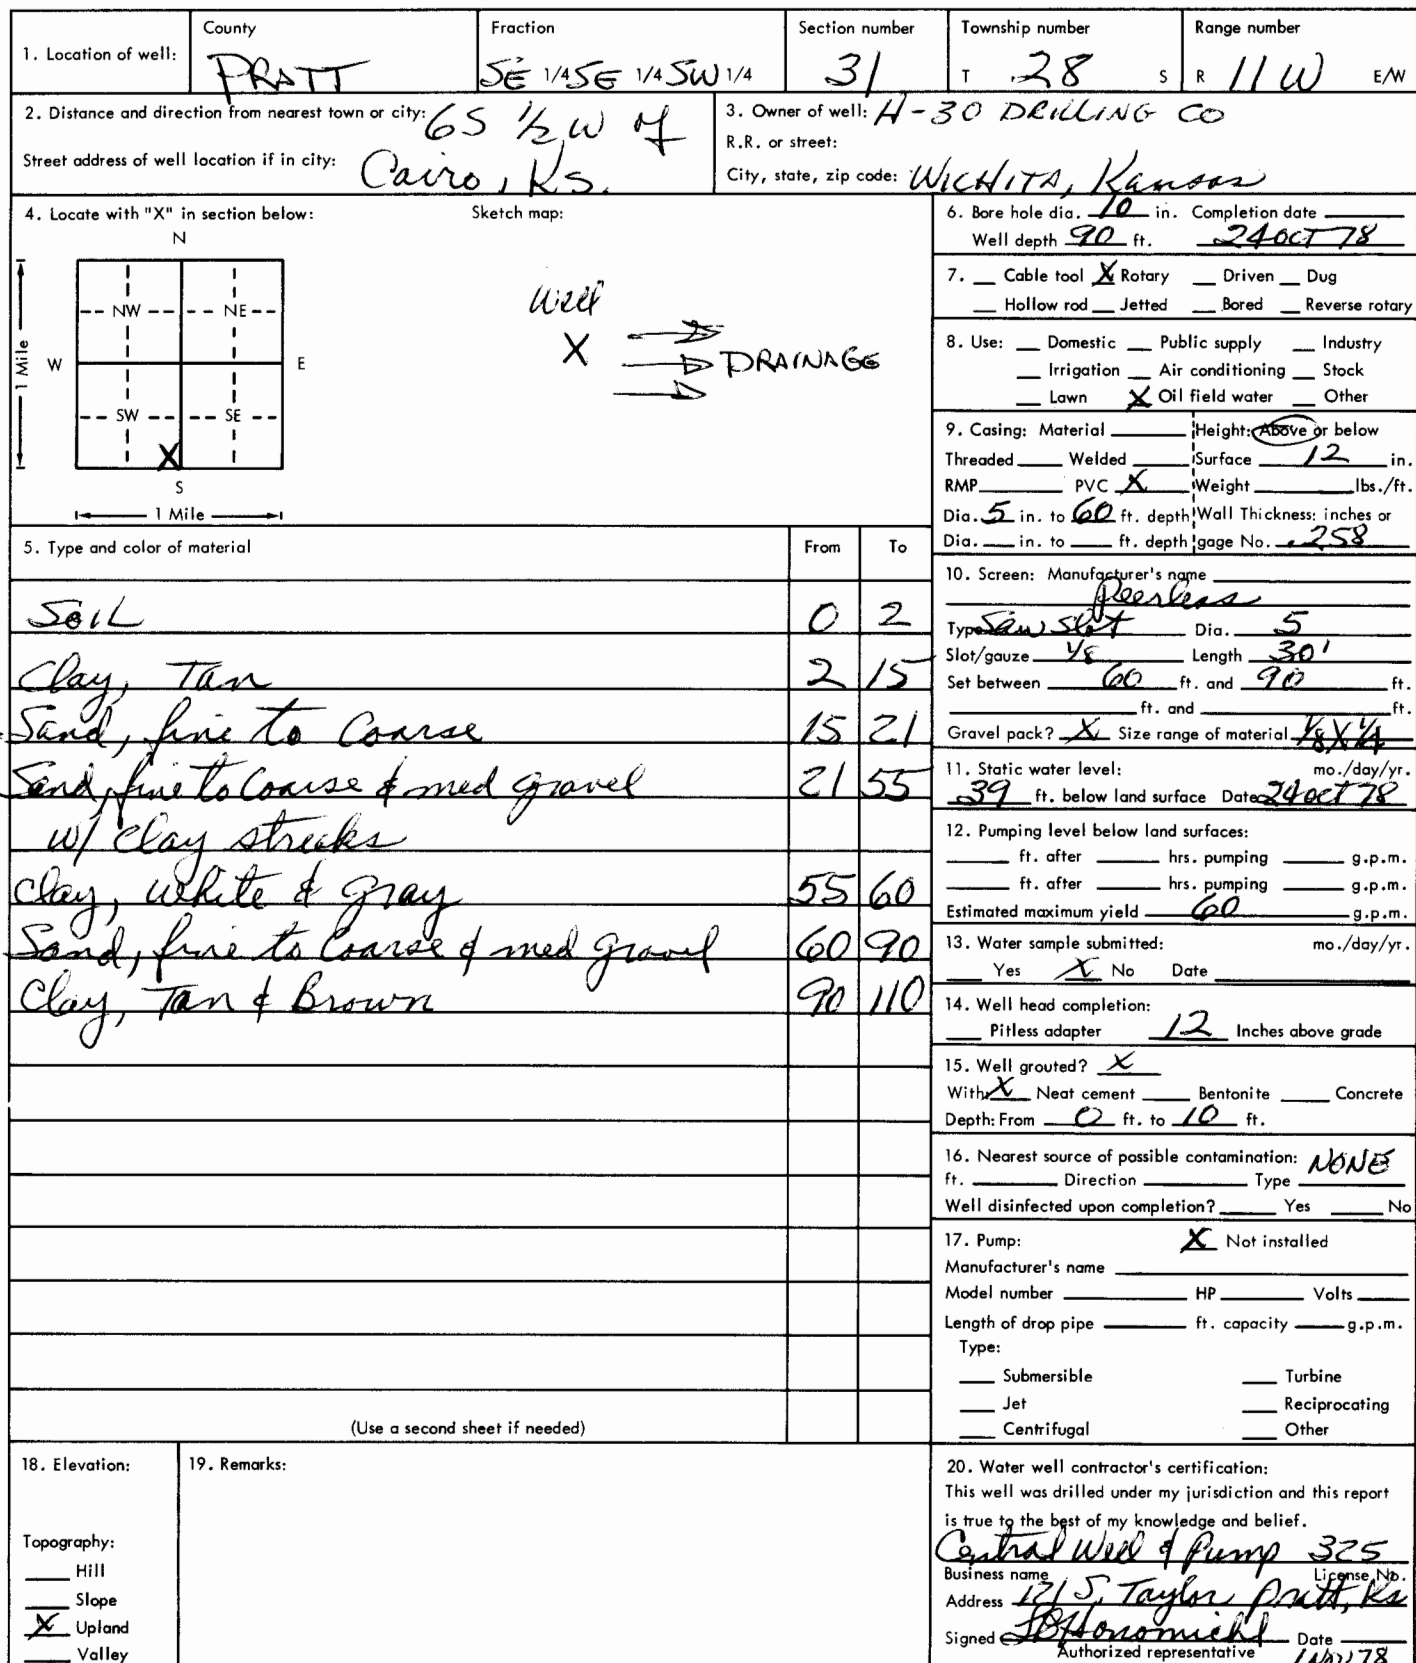 1. Location of well: County PRATT Fraction SE 1/4 SE 1/4 SW 1/4 Section number 31 Township number T 28 S Range number R 11 W E/W
2. Distance and direction from nearest town or city: 6S 1/2 W of
Street address of well location if in city: Cairo, Ks.
3. Owner of well: H-30 DRILLING CO
R.R. or street:
City, state, zip code: WICHITA, Kansas
4. Locate with "X" in section below:
Sketch map:
N
NW NE
W E
1 Mile
SW SE
X
S
1 Mile
Well
X DRAINAGE
5. Type and color of material From To
SOIL 0 2
Clay, Tan 2 15
Sand, fine to Coarse 15 21
Sand, fine to Coarse & med gravel 21 55
w/ clay streaks
Clay, White & gray 55 60
Sand, fine to Coarse & med gravel 60 90
Clay, Tan & Brown 90 110
(Use a second sheet if needed)
6. Bore hole dia. 10 in. Completion date
Well depth 90 ft. 24 OCT 78
7. Cable tool X Rotary Driven Dug
Hollow rod Jetted Bored Reverse rotary
8. Use: Domestic Public supply Industry
Irrigation Air conditioning Stock
Lawn X Oil field water Other
9. Casing: Material Height: Above or below
Threaded Welded Surface 12 in.
RMP PVC X Weight lbs./ft.
Dia. 5 in. to 60 ft. depth Wall Thickness: inches or
Dia. in. to ft. depth gage No. .258
10. Screen: Manufacturer's name
Peerless
Type Saw Slot Dia. 5
Slot/gauze 1/8 Length 30'
Set between 60 ft. and 90 ft.
ft. and ft.
Gravel pack? X Size range of material 1/8 X 1/4
11. Static water level: mo./day/yr.
39 ft. below land surface Date 24 Oct 78
12. Pumping level below land surfaces:
ft. after hrs. pumping g.p.m.
ft. after hrs. pumping g.p.m.
Estimated maximum yield 60 g.p.m.
13. Water sample submitted: mo./day/yr.
Yes X No Date
14. Well head completion:
Pitless adapter 12 Inches above grade
15. Well grouted? X
With: X Neat cement Bentonite Concrete
Depth: From 0 ft. to 10 ft.
16. Nearest source of possible contamination: NONE
ft. Direction Type
Well disinfected upon completion? Yes No
17. Pump: X Not installed
Manufacturer's name
Model number HP Volts
Length of drop pipe ft. capacity g.p.m.
Type:
Submersible Turbine
Jet Reciprocating
Centrifugal Other
18. Elevation:
Topography:
Hill
Slope
X Upland
Valley
19. Remarks:
20. Water well contractor's certification:
This well was drilled under my jurisdiction and this report
is true to the best of my knowledge and belief.
Central Well & Pump 325
Business name License No.
Address 121 S. Taylor Pratt, Ks
Signed Honomichl Date
Authorized representative 1 Nov 78